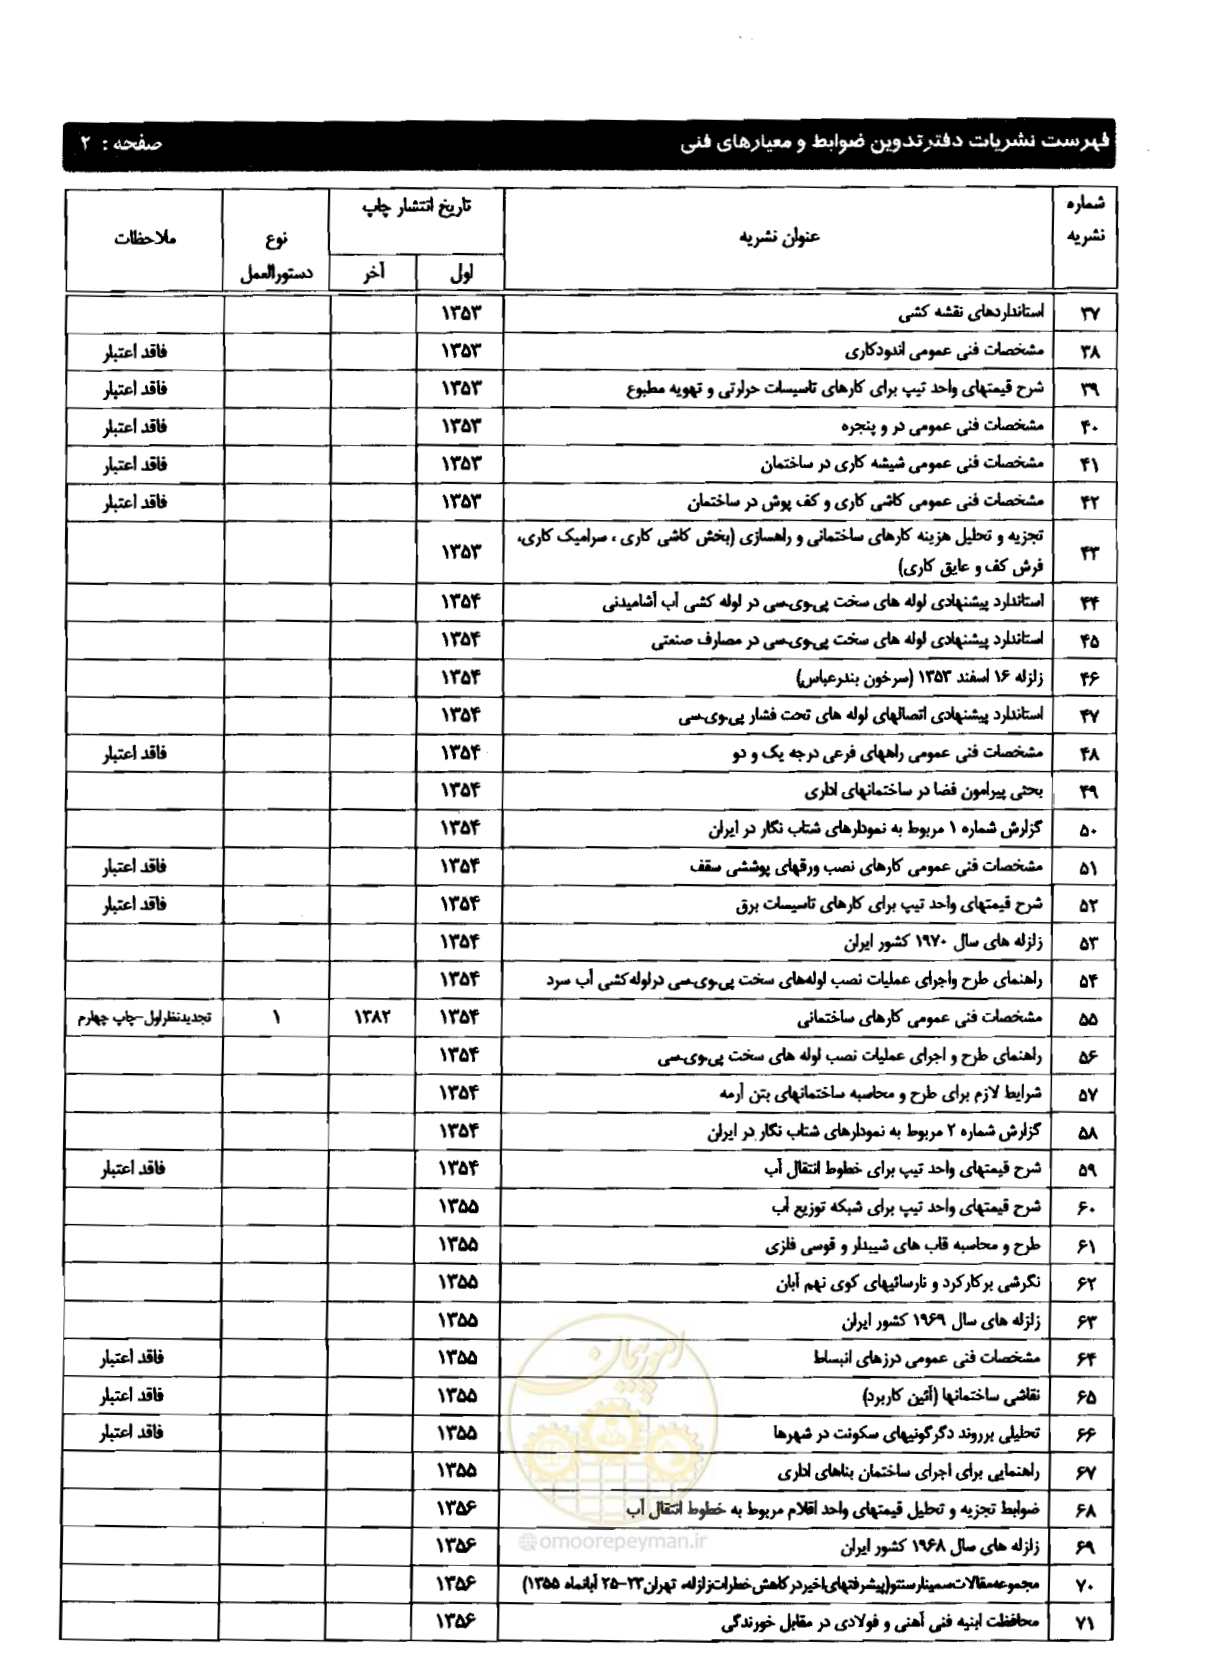 فهرست نشریات دفتر تدوین ضوابط و معیارهای فنی صفحه : ۲
شماره نشریه عنوان نشریه تاریخ انتشار چاپ نوع دستورالعمل ملاحظات
اول آخر
۳۷ استانداردهای نقشه کشی ۱۳۵۳
۳۸ مشخصات فنی عمومی اندودکاری ۱۳۵۳ فاقد اعتبار
۳۹ شرح قیمتهای واحد تیپ برای کارهای تاسیسات حرارتی و تهویه مطبوع ۱۳۵۳ فاقد اعتبار
۴۰ مشخصات فنی عمومی در و پنجره ۱۳۵۳ فاقد اعتبار
۴۱ مشخصات فنی عمومی شیشه کاری در ساختمان ۱۳۵۳ فاقد اعتبار
۴۲ مشخصات فنی عمومی کاشی کاری و کف پوش در ساختمان ۱۳۵۳ فاقد اعتبار
۴۳ تجزیه و تحلیل هزینه کارهای ساختمانی و راهسازی (بخش کاشی کاری ، سرامیک کاری، ۱۳۵۳
فرش کف و عایق کاری)
۴۴ استاندارد پیشنهادی لوله های سخت پی.وی.سی در لوله کشی آب آشامیدنی ۱۳۵۴
۴۵ استاندارد پیشنهادی لوله های سخت پی.وی.سی در مصارف صنعتی ۱۳۵۴
۴۶ زلزله ۱۶ اسفند ۱۳۵۳ (سرخون بندرعباس) ۱۳۵۴
۴۷ استاندارد پیشنهادی اتصالهای لوله های تحت فشار پی.وی.سی ۱۳۵۴
۴۸ مشخصات فنی عمومی راههای فرعی درجه یک و دو ۱۳۵۴ فاقد اعتبار
۴۹ بحثی پیرامون فضا در ساختمانهای اداری ۱۳۵۴
۵۰ گزارش شماره ۱ مربوط به نمودارهای شتاب نگار در ایران ۱۳۵۴
۵۱ مشخصات فنی عمومی کارهای نصب ورقهای پوششی سقف ۱۳۵۴ فاقد اعتبار
۵۲ شرح قیمتهای واحد تیپ برای کارهای تاسیسات برق ۱۳۵۴ فاقد اعتبار
۵۳ زلزله های سال ۱۹۷۰ کشور ایران ۱۳۵۴
۵۴ راهنمای طرح واجرای عملیات نصب لوله‌های سخت پی.وی.سی درلوله‌کشی آب سرد ۱۳۵۴
۵۵ مشخصات فنی عمومی کارهای ساختمانی ۱۳۵۴ ۱۳۸۲ ۱ تجدیدنظراول-چاپ چهارم
۵۶ راهنمای طرح و اجرای عملیات نصب لوله های سخت پی.وی.سی ۱۳۵۴
۵۷ شرایط لازم برای طرح و محاسبه ساختمانهای بتن آرمه ۱۳۵۴
۵۸ گزارش شماره ۲ مربوط به نمودارهای شتاب نگار در ایران ۱۳۵۴
۵۹ شرح قیمتهای واحد تیپ برای خطوط انتقال آب ۱۳۵۴ فاقد اعتبار
۶۰ شرح قیمتهای واحد تیپ برای شبکه توزیع آب ۱۳۵۵
۶۱ طرح و محاسبه قاب های شیبدار و قوسی فلزی ۱۳۵۵
۶۲ نگرشی برکارکرد و نارسائیهای کوی نهم آبان ۱۳۵۵
۶۳ زلزله های سال ۱۹۶۹ کشور ایران ۱۳۵۵
۶۴ مشخصات فنی عمومی درزهای انبساط ۱۳۵۵ فاقد اعتبار
۶۵ نقاشی ساختمانها (آئین کاربرد) ۱۳۵۵ فاقد اعتبار
۶۶ تحلیلی برروند دگرگونیهای سکونت در شهرها ۱۳۵۵ فاقد اعتبار
۶۷ راهنمایی برای اجرای ساختمان بناهای اداری ۱۳۵۵
۶۸ ضوابط تجزیه و تحلیل قیمتهای واحد اقلام مربوط به خطوط انتقال آب ۱۳۵۶
۶۹ زلزله های سال ۱۹۶۸ کشور ایران ۱۳۵۶
۷۰ مجموعه‌مقالات‌سمینارسنتو(پیشرفتهای‌اخیردرکاهش‌خطرات‌زلزله، تهران۲۳-۲۵ آبانماه ۱۳۵۵) ۱۳۵۶
۷۱ محافظت ابنیه فنی آهنی و فولادی در مقابل خورندگی ۱۳۵۶
امور پیمان
@omoorepeyman.ir